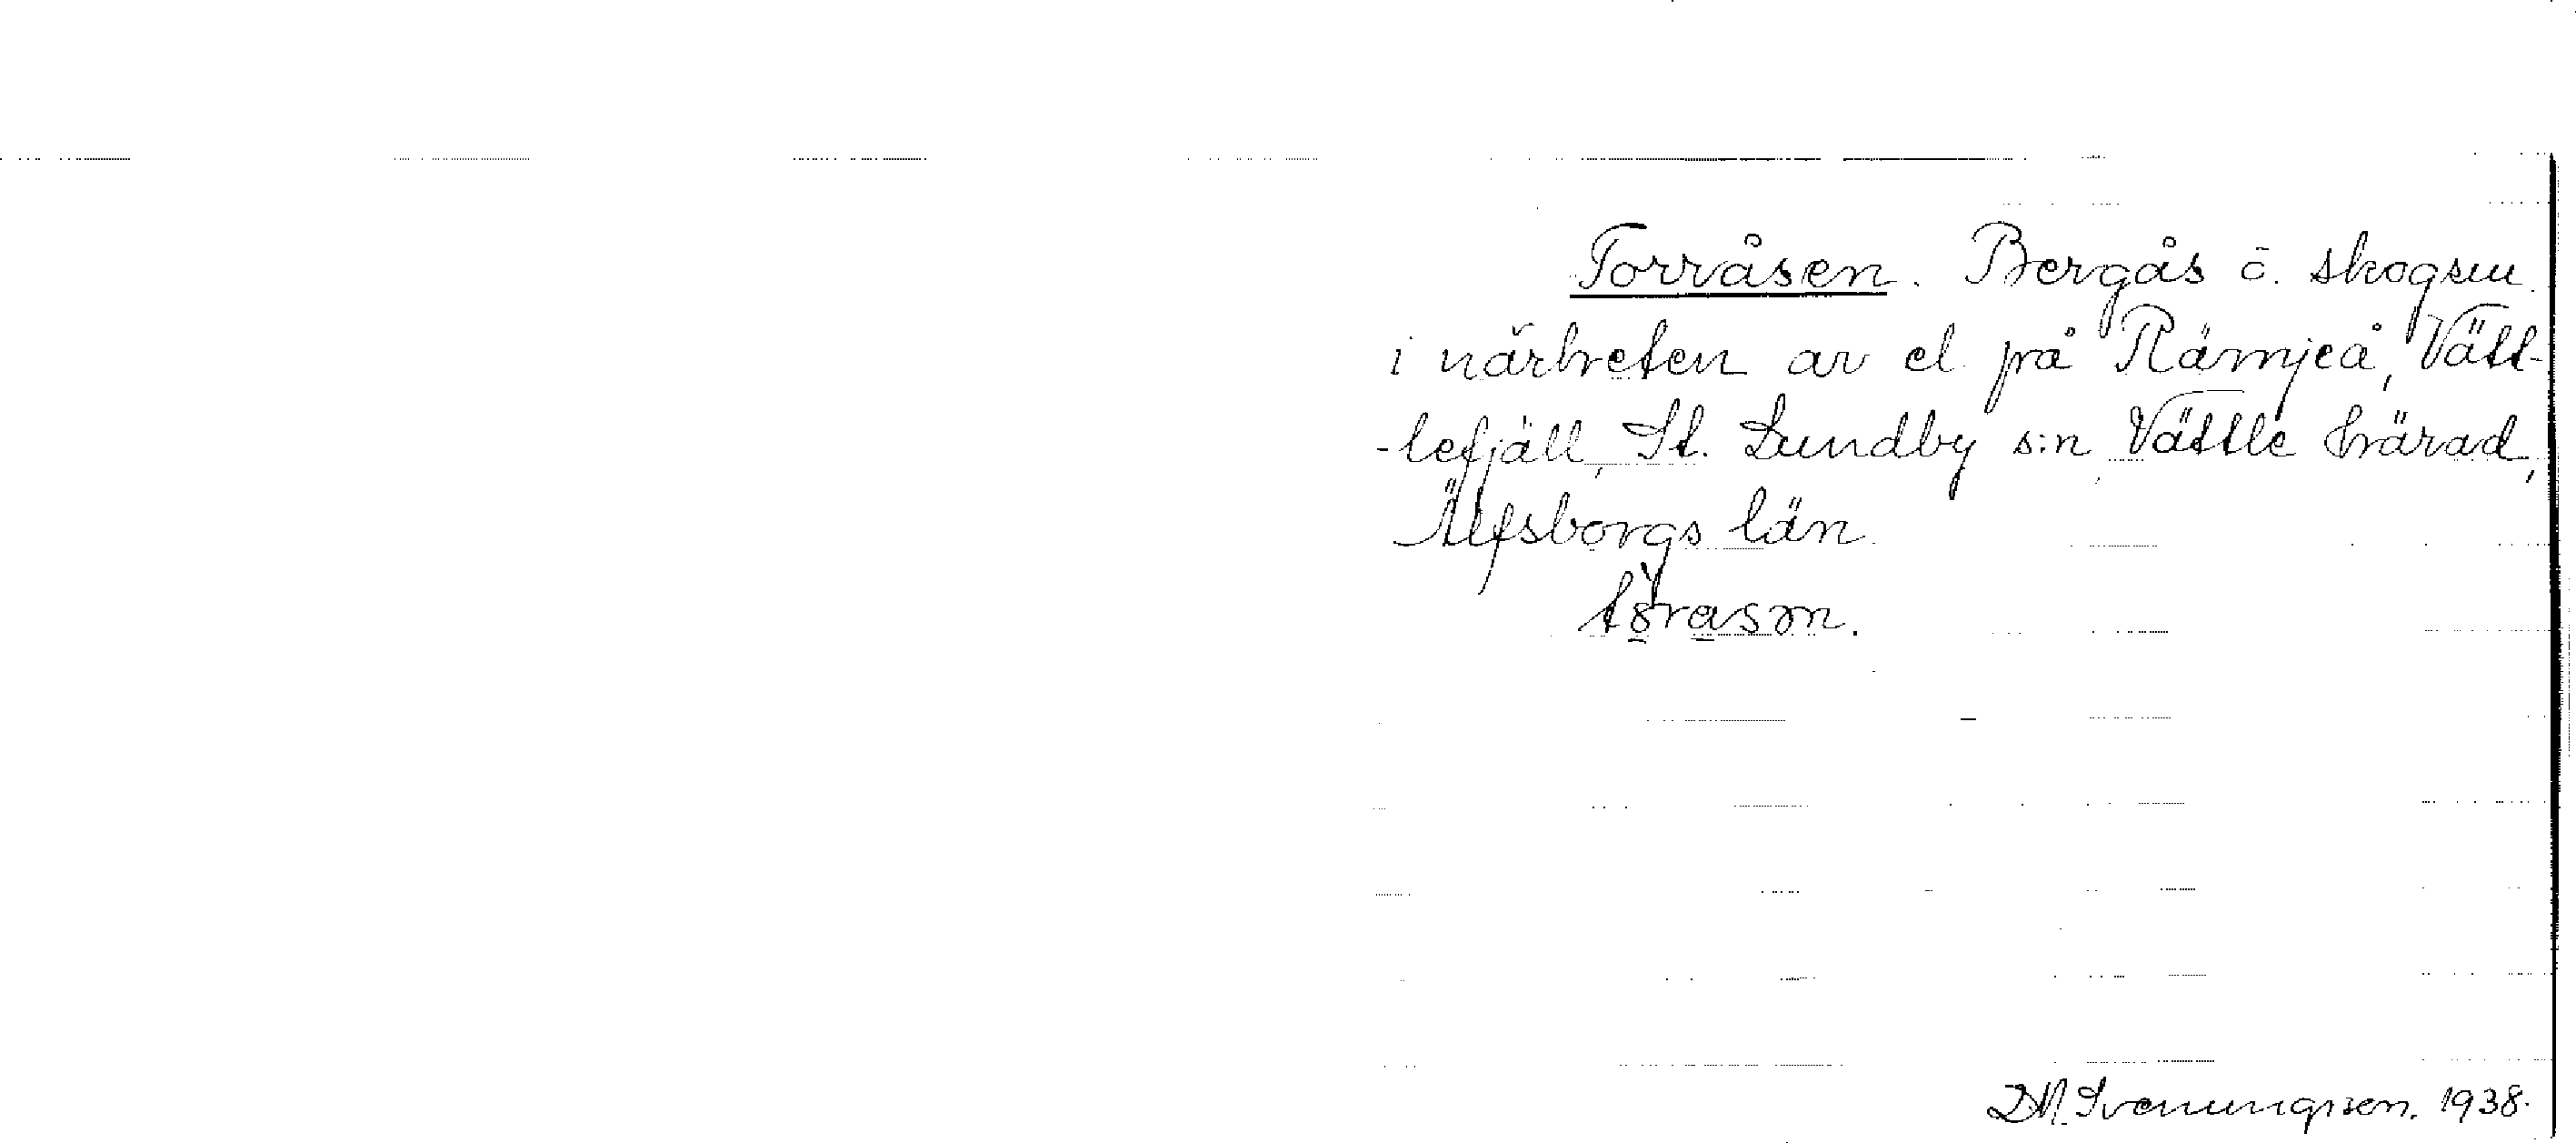 Torråsen. Bergås o. skogsm.
i närheten av el. på Rämjeå, Vätt-
-lefjäll, St. Lundby s:n Vättle härad,
Älfsborgs län.
törason.
D.N. Svenungsson. 1938.